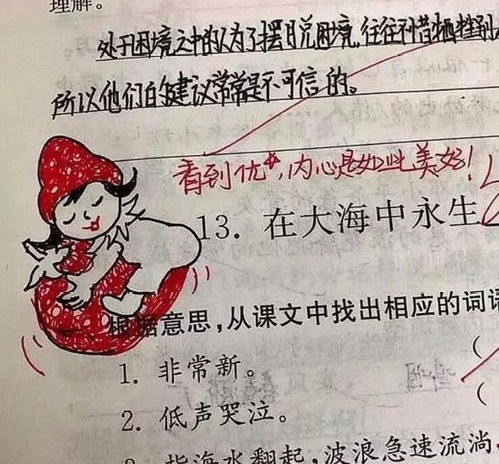 理解。
处于困境之中的人为了摆脱困境,往往不惜牺牲别人
所以他们的建议常常是不可信的。
看到优☆,内心是如此美好!
13. 在大海中永生
根据意思,从课文中找出相应的词语
1. 非常新。 (
2. 低声哭泣。 (
3. 指海水翻起,波浪急速流淌